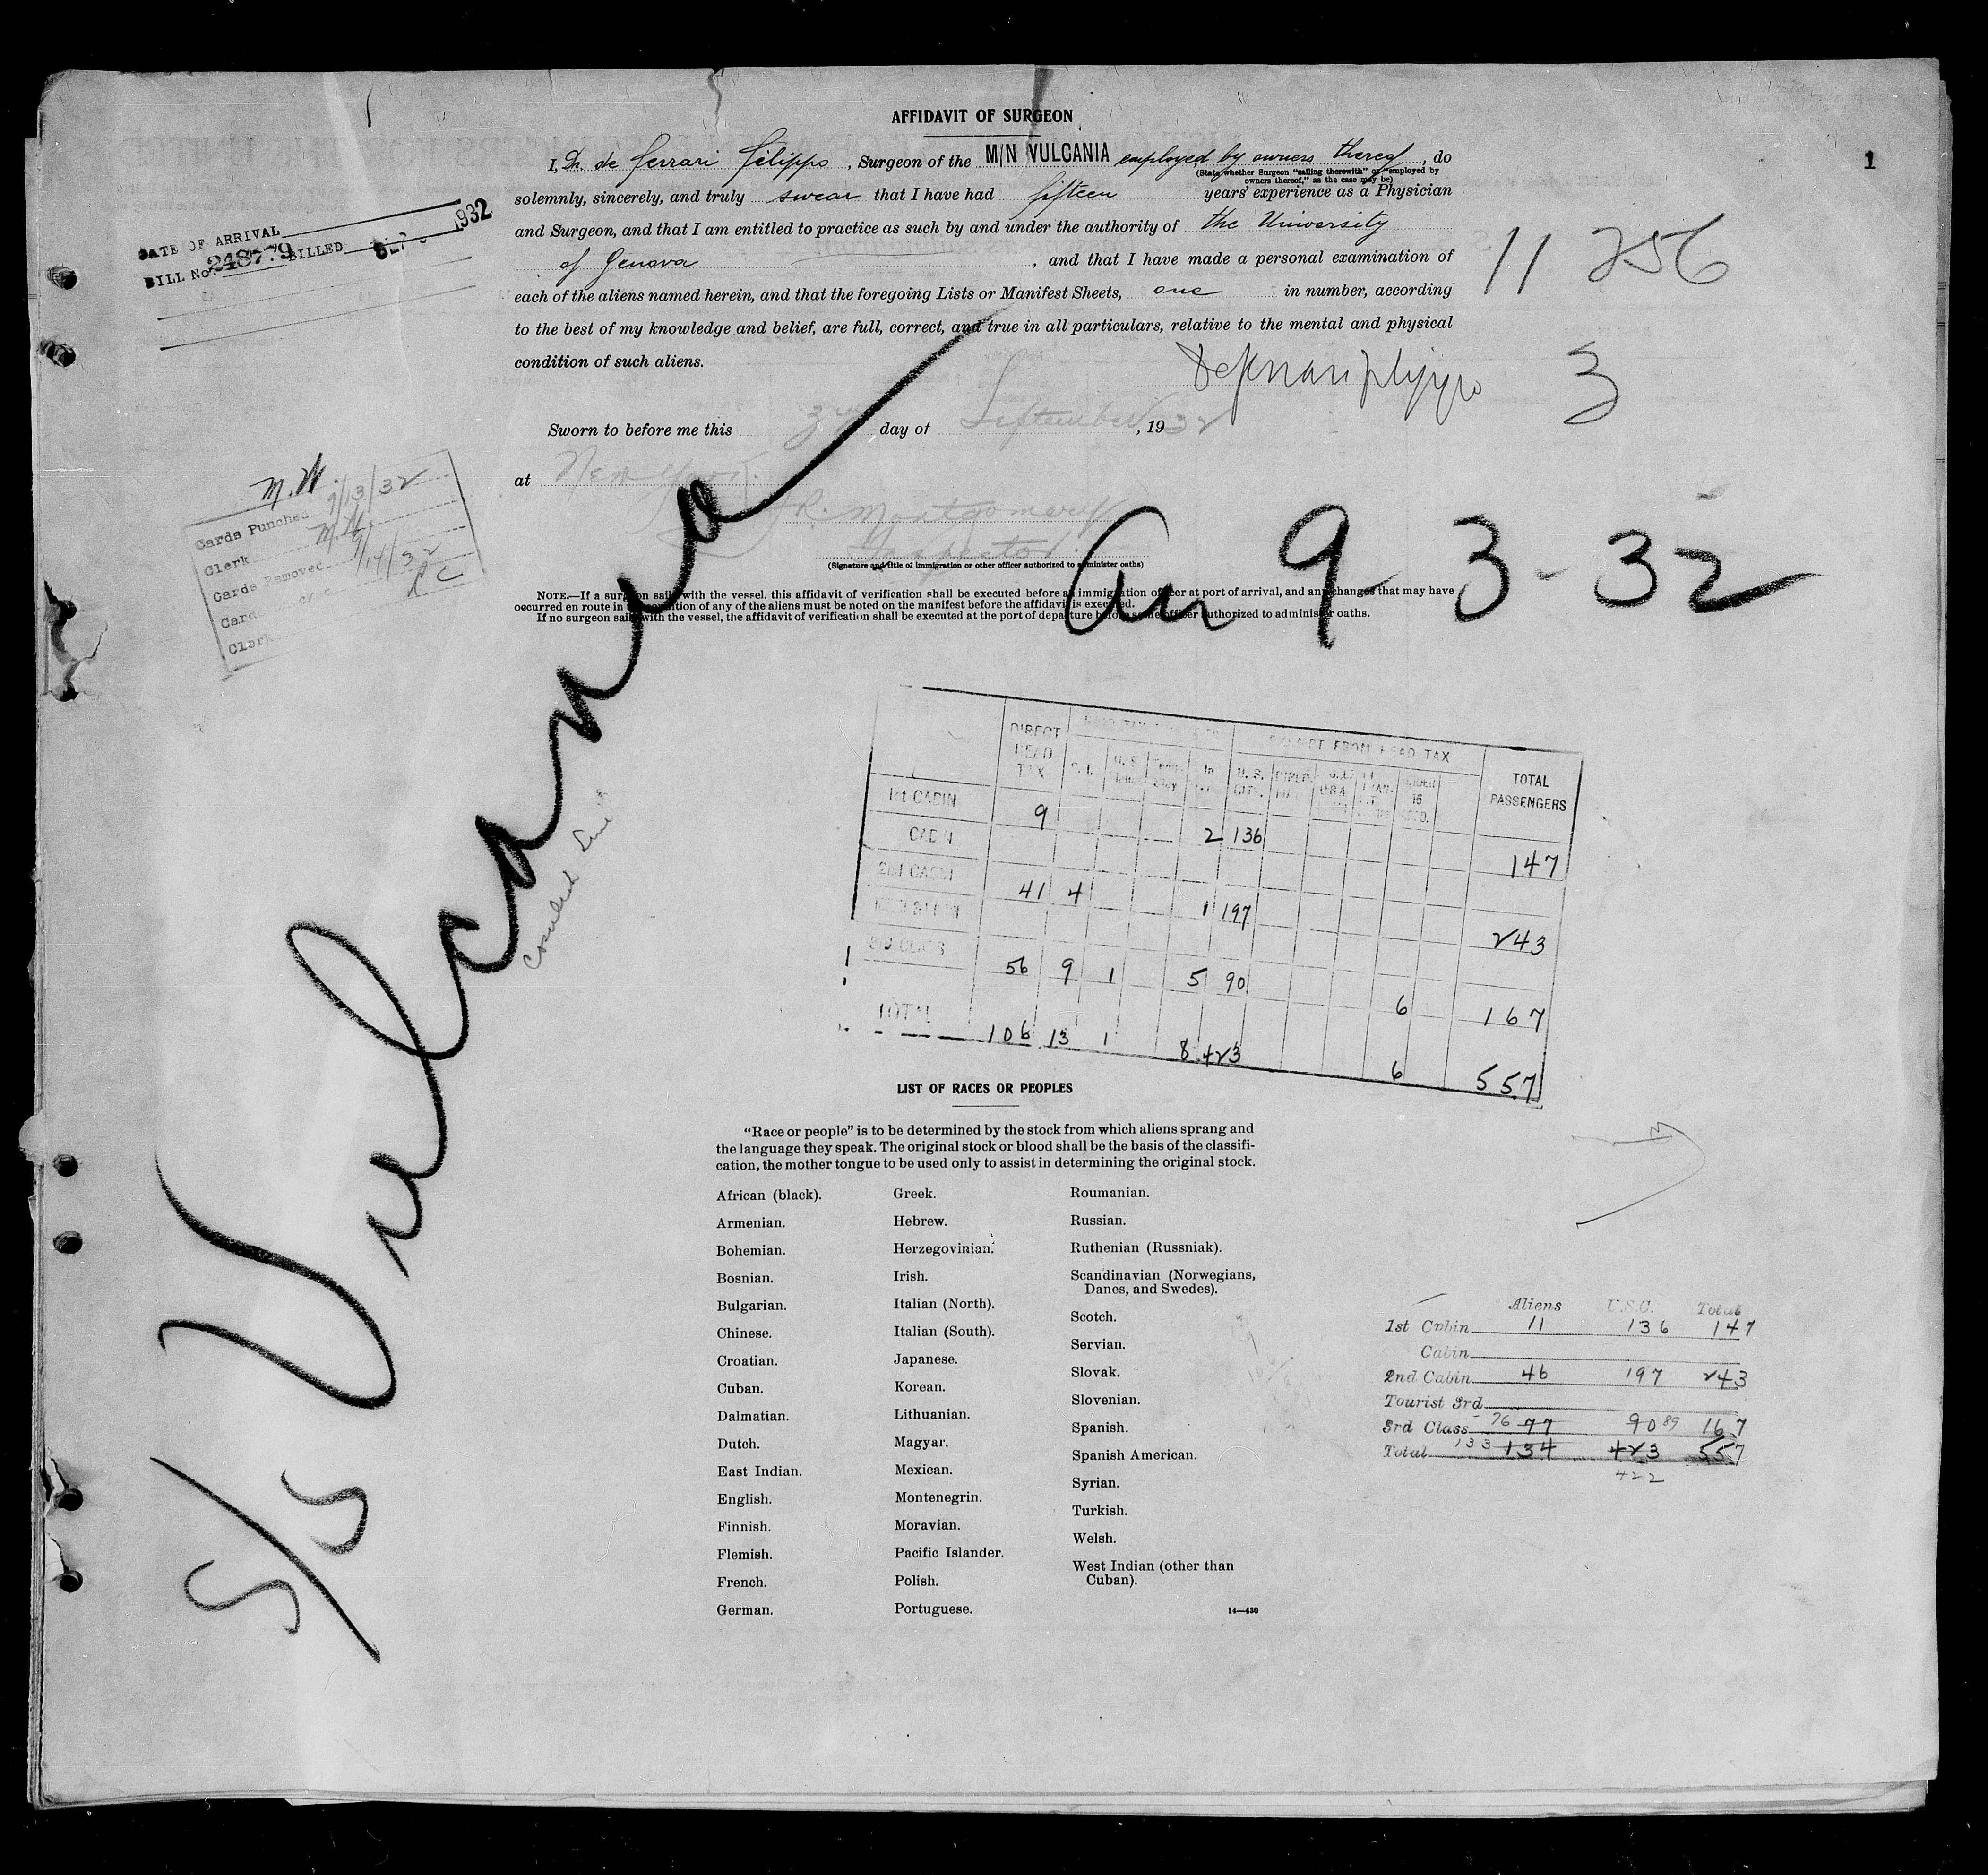 AFFIDAVIT OF SURGEON
1
I, Dr. de Ferrari Filippo, Surgeon of the M/N VULCANIA employed by owners thereof, do
(State whether Surgeon "sailing therewith" or "employed by
owners thereof," as the case may be)
solemnly, sincerely, and truly swear that I have had fifteen years' experience as a Physician
and Surgeon, and that I am entitled to practice as such by and under the authority of the University
of Genova, and that I have made a personal examination of
each of the aliens named herein, and that the foregoing Lists or Manifest Sheets, one in number, according
to the best of my knowledge and belief, are full, correct, and true in all particulars, relative to the mental and physical
condition of such aliens.
De Ferrari Filippo
Sworn to before me this 3 day of September, 1932
at New York.
R. Montgomery
Inspector.
(Signature and title of immigration or other officer authorized to administer oaths)
NOTE.—If a surgeon sails with the vessel, this affidavit of verification shall be executed before an immigration officer at port of arrival, and any changes that may have
occurred en route in the condition of any of the aliens must be noted on the manifest before the affidavit is executed.
If no surgeon sails with the vessel, the affidavit of verification shall be executed at the port of departure before some officer authorized to administer oaths.
DATE OF ARRIVAL
1932
BILL No. 248779 BILLED
11 256
3
M.W. 9/13/32
Cards Punched
Clerk M.W.
Cards Removed 9/14/32
Card
Clerk
Arr 9-3-32
S/S Vulcania
Cosulich Line
DIRECT HEAD TAX
EXEMPT FROM HEAD TAX
TOTAL PASSENGERS
1st CABIN 9 2 136 147
CABIN
2nd CABIN 41 4 1 197 243
3RD CLASS 56 9 1 5 90 6 167
TOTAL 106 13 1 8 423 6 557
LIST OF RACES OR PEOPLES
"Race or people" is to be determined by the stock from which aliens sprang and
the language they speak. The original stock or blood shall be the basis of the classifi-
cation, the mother tongue to be used only to assist in determining the original stock.
African (black).
Armenian.
Bohemian.
Bosnian.
Bulgarian.
Chinese.
Croatian.
Cuban.
Dalmatian.
Dutch.
East Indian.
English.
Finnish.
Flemish.
French.
German.
Greek.
Hebrew.
Herzegovinian.
Irish.
Italian (North).
Italian (South).
Japanese.
Korean.
Lithuanian.
Magyar.
Mexican.
Montenegrin.
Moravian.
Pacific Islander.
Polish.
Portuguese.
Roumanian.
Russian.
Ruthenian (Russniak).
Scandinavian (Norwegians,
Danes, and Swedes).
Scotch.
Servian.
Slovak.
Slovenian.
Spanish.
Spanish American.
Syrian.
Turkish.
Welsh.
West Indian (other than
Cuban).
14—430
Aliens U.S.C. Total
1st Cabin 11 136 147
Cabin
2nd Cabin 46 197 243
Tourist 3rd
3rd Class 76 77 90 89 167
Total 133 134 423 557
422